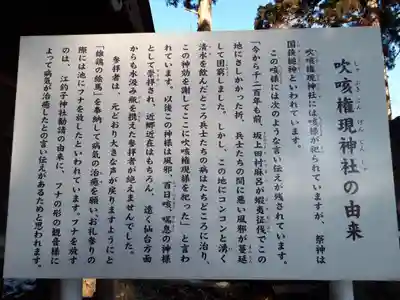 吹咳権現神社の由来
しゃぶきごんげんじんじゃ
吹咳権現神社には咳様が祀られていますが、祭神は
国狭槌神といわれています。
この咳様には次のような言い伝えが残されています。
「今から千二百年も前、坂上田村麻呂が蝦夷征伐でこの
地にさしかかった折、兵士たちの間に悪い風邪が蔓延
して困窮しました。しかし、この地にコンコンと湧く
清水を飲んだところ兵士たちの病はたちどころに治り、
この神効を謝してここに吹咳権現様を祀った」と言わ
れています。以後この神様は風邪、百日咳、喘息の神様
として崇拝され、近郷近在はもちろん、遠く仙台方面
からも水汲み瓶を携えた参拝者が絶えませんでした。
参拝者は、元どおり大きな声が戻りますようにと
「雄鶏の絵馬」を奉納して病気の治癒を願い、お礼参りの
際には池にフナを放したといわれています。フナを放す
のは、江釣子神社勧請の由来に、フナの形の観音様に
よって病気が治癒したとの言い伝えがあるためと思われます。